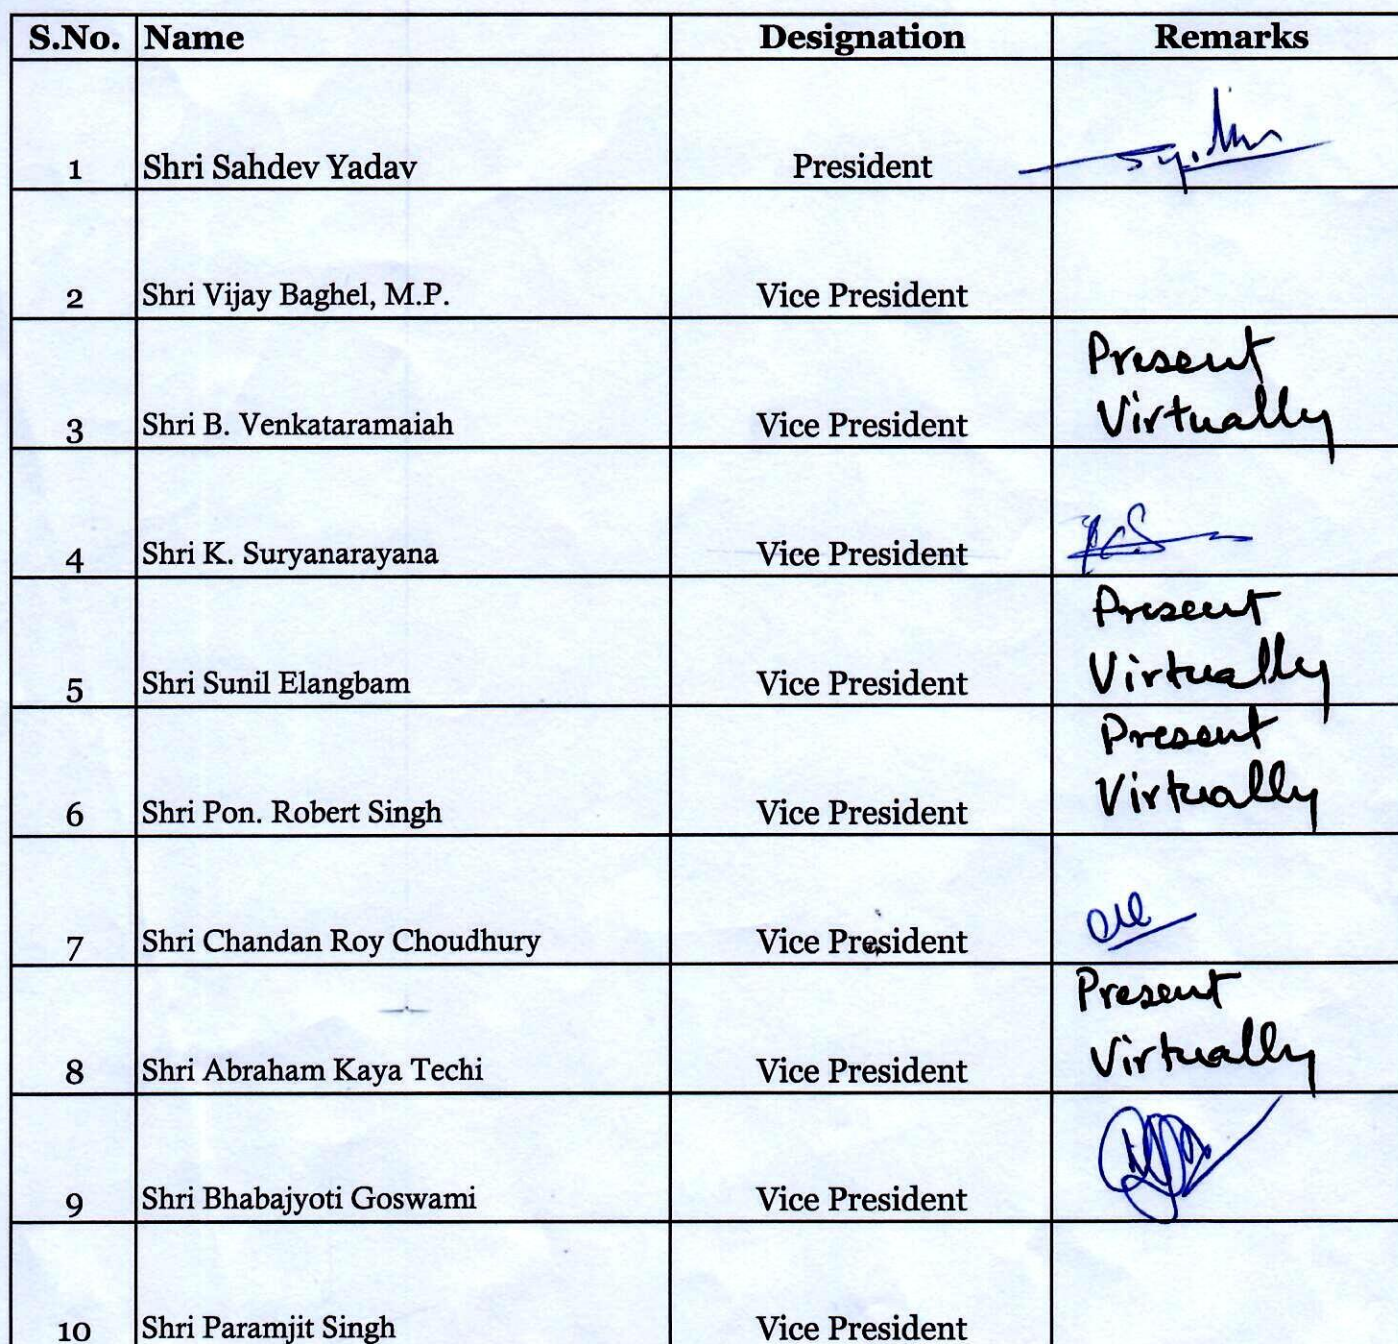 S.No. Name Designation Remarks
1 Shri Sahdev Yadav President
2 Shri Vijay Baghel, M.P. Vice President
Present
3 Shri B. Venkataramaiah Vice President Virtually
4 Shri K. Suryanarayana Vice President
Present
5 Shri Sunil Elangbam Vice President Virtually
Present
6 Shri Pon. Robert Singh Vice President Virtually
7 Shri Chandan Roy Choudhury Vice President
Present
8 Shri Abraham Kaya Techi Vice President Virtually
9 Shri Bhabajyoti Goswami Vice President
10 Shri Paramjit Singh Vice President